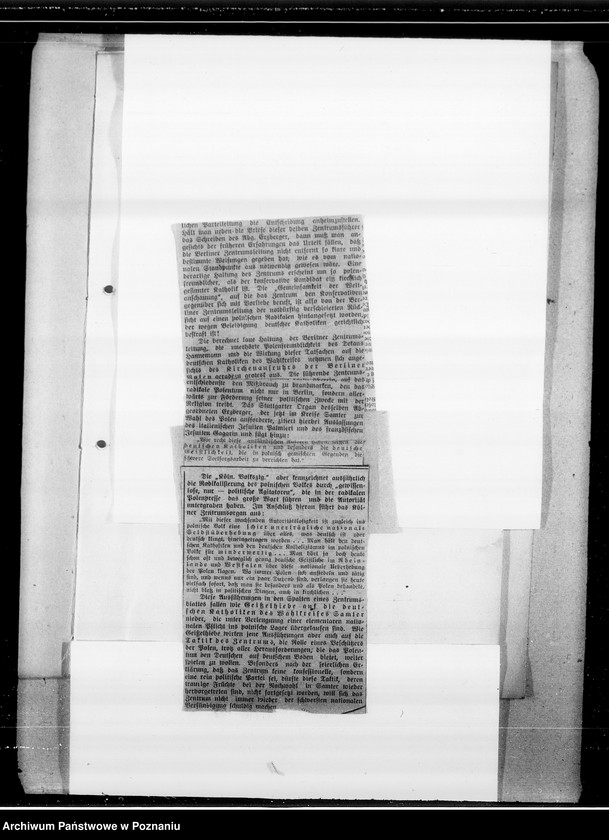 lichen Parteileitung die Entscheidung anheimzustellen.
Hält man neben die Briefe dieser beiden Zentrumsführer
das Schreiben des Abg. Erzberger, dann muß man an-
gesichts der früheren Erfahrungen das Urteil fällen, daß
die Berliner Zentrumsleitung nicht entfernt so klare und
bestimmte Weisungen gegeben hat, wie es vom natio-
nalen Standpunkte aus notwendig gewesen wäre. Eine
derartige Haltung des Zentrums erscheint um so polen-
freundlicher, als der konservative Kandidat ein kirchlich
gesinnter Katholik ist. Die „Gemeinsamkeit der Welt-
anschauung“, auf die das Zentrum den Konservativen
gegenüber sich mit Vorliebe beruft, ist also von der Ber-
liner Zentrumsleitung der notdürftig verschleierten Rück-
sicht auf einen polnischen Radikalen hintangesetzt worden,
der wegen Beleidigung deutscher Katholiken gerichtlich
bestraft ist!
Die berechnet laue Haltung der Berliner Zentrums-
leitung, die unerhörte Polenfreundlichkeit des Dekans
Hannemann und die Wirkung dieser Tatsachen auf die
deutschen Katholiken des Wahlkreises nehmen sich ange-
sichts des Kirchenaufruhrs der Berliner
Polen geradezu grotesk aus. Die führende Zentrums-
entschiedenste den Mißbrauch zu brandmarken, den das
radikale Polentum nicht nur in Berlin, sondern aller-
wärts zur Förderung seiner politischen Zwecke mit der
Religion treibt. Das Stuttgarter Organ desselben Ab-
geordneten Erzberger, der jetzt im Kreise Samter zur
Wahl des Polen aufforderte, zitiert hierbei Auslassungen
des italienischen Jesuiten Palmieri und des französischen
Jesuiten Gagarin und fügt hinzu:
„Wie recht diese ausländischen haben, wissen alle
deutschen Katholiken und besonders die deutsche
Geistlichkeit, die in polnisch gemischten Gegenden die
schwere Seelsorgsarbeit zu verrichten hat.“
Die „Köln. Volksztg.“ aber kennzeichnet ausführlich
die Radikalisierung des polnischen Volkes durch „gewissen-
lose, nur — politische Agitatoren“, die in der radikalen
Polenpresse das große Wort führen und die Autorität
untergraben haben. Im Anschluß hieran führt das Köl-
ner Zentrumsorgan aus:
„Mit dieser wachsenden Autoritätslosigkeit ist zugleich ins
polnische Volk eine schier unerträgliche nationale
Selbstüberhebung über alles, was deutsch ist oder
deutsch klingt, hineingetragen worden . . . Man hält den deut-
schen Katholiken und den deutschen Katholizismus im polnischen
Volk für minderwertig . . . Man hört ja doch heute
schon oft und beweglich genug deutsche Geistliche im Rhein-
lande und Westfalen über diese nationale Ueberhebung
der Polen klagen. Wo immer Polen sich ansiedeln und tätig
sind, und wenns nur ein paar Dutzend sind, verlangen sie heute
vielfach sofort, daß man sie besonders und als Polen behandele,
nicht bloß in politischen Dingen, auch in kirchlichen . . .“
Diese Ausführungen in den Spalten eines Zentrums-
blattes fallen wie Geißelhiebe auf die deut-
schen Katholiken des Wahlkreises Samter
nieder, die unter Verleugnung einer elementaren natio-
nalen Pflicht ins polnische Lager übergelaufen sind. Wie
Geißelhiebe wirken jene Ausführungen aber auch auf die
Taktik des Zentrums, die Rolle eines Beschützers
der Polen, trotz aller Herausforderungen, die das Polen-
tum den Deutschen auf deutschem Boden bietet, weiter
spielen zu wollen. Besonders nach der feierlichen Er-
klärung, daß das Zentrum keine konfessionelle, sondern
eine rein politische Partei sei, dürfte diese Taktik, deren
traurige Früchte bei der Nachwahl in Samter wieder
hervorgetreten sind, nicht fortgesetzt werden, will sich das
Zentrum nicht immer wieder der schwersten nationalen
Versündigung schuldig machen
Archiwum Państwowe w Poznaniu